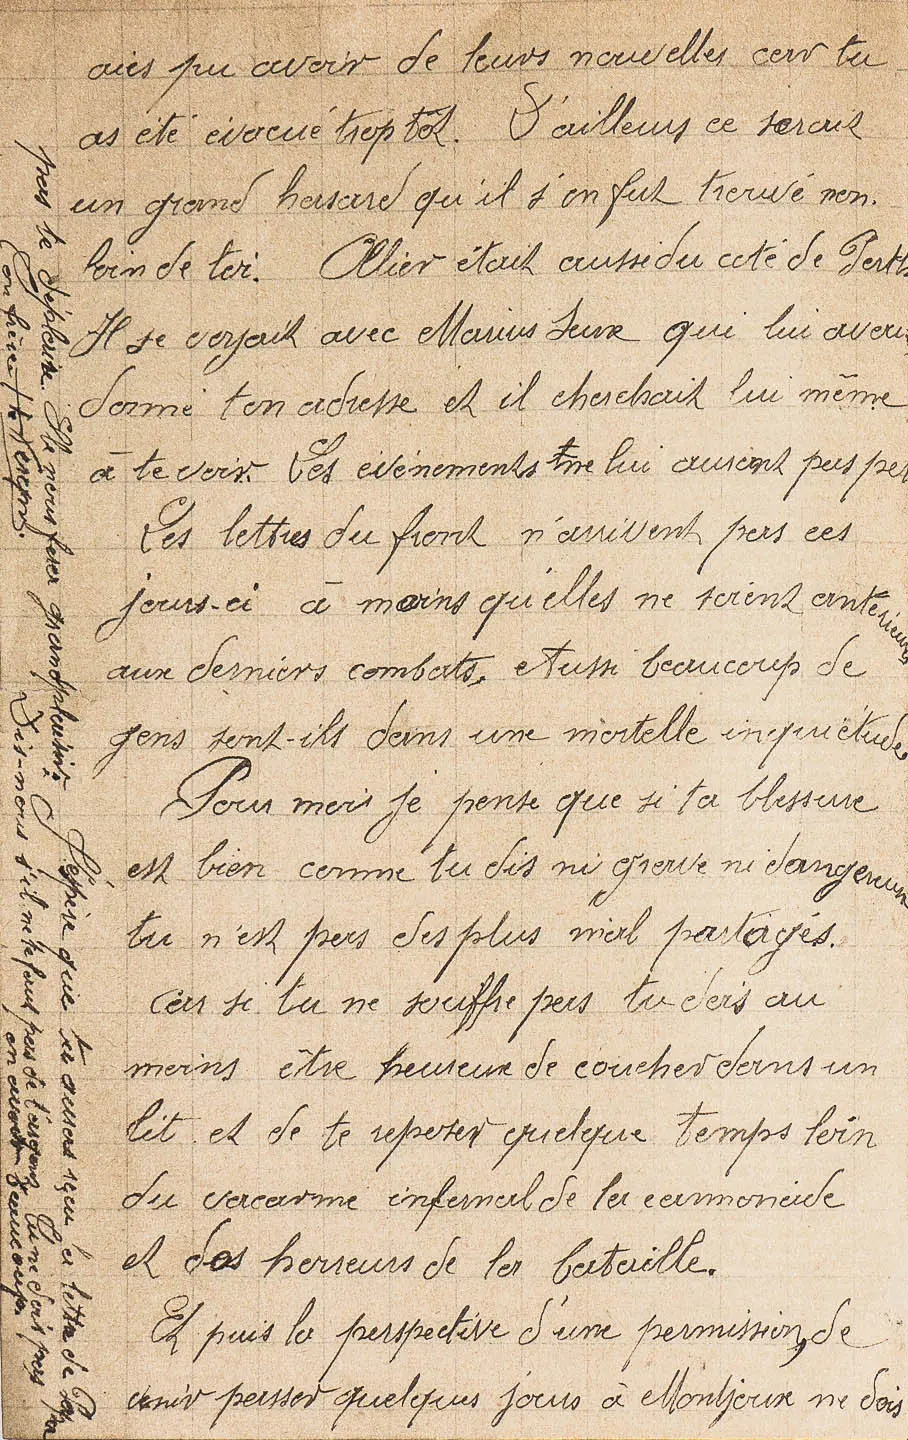 aies pu avoir de leurs nouvelles car tu
as été évacué trop tôt. D'ailleurs ce serait
un grand hasard qu'il s'en fut trouvé non
loin de toi. Allier était aussi du coté de Perthes
Il se voyait avec Marius Seux qui lui avait
donné ton adresse et il cherchait lui même
à te voir. Les événements ne lui auront pas per
Les lettres du front n'arrivent pas ces
jours-ci à moins qu'elles ne soient antérieures
aux derniers combats, Aussi beaucoup de
gens sont-ils dans une mortelle inquiétude.
Pour moi je pense que si ta blessure
est bien comme tu dis ni grave ni dangereuse
tu n'est pas des plus mal partagés.
Car si tu ne souffre pas tu dois au
moins être heureux de coucher dans un
lit et de te reposer quelque temps loin
du vacarme infernal de la cannonade
et des horreurs de la bataille.
Et puis la perspective d'une permission, de
venir passer quelques jours à Montjoux ne dois
pas te déplaire. Elle nous fera grand plaisir.
J'espère que tu auras reçu la lettre de Papa
Dis-nous s'il ne te faut pas de l'argent tu ne dois pas
en avoir beaucoup.
on frère